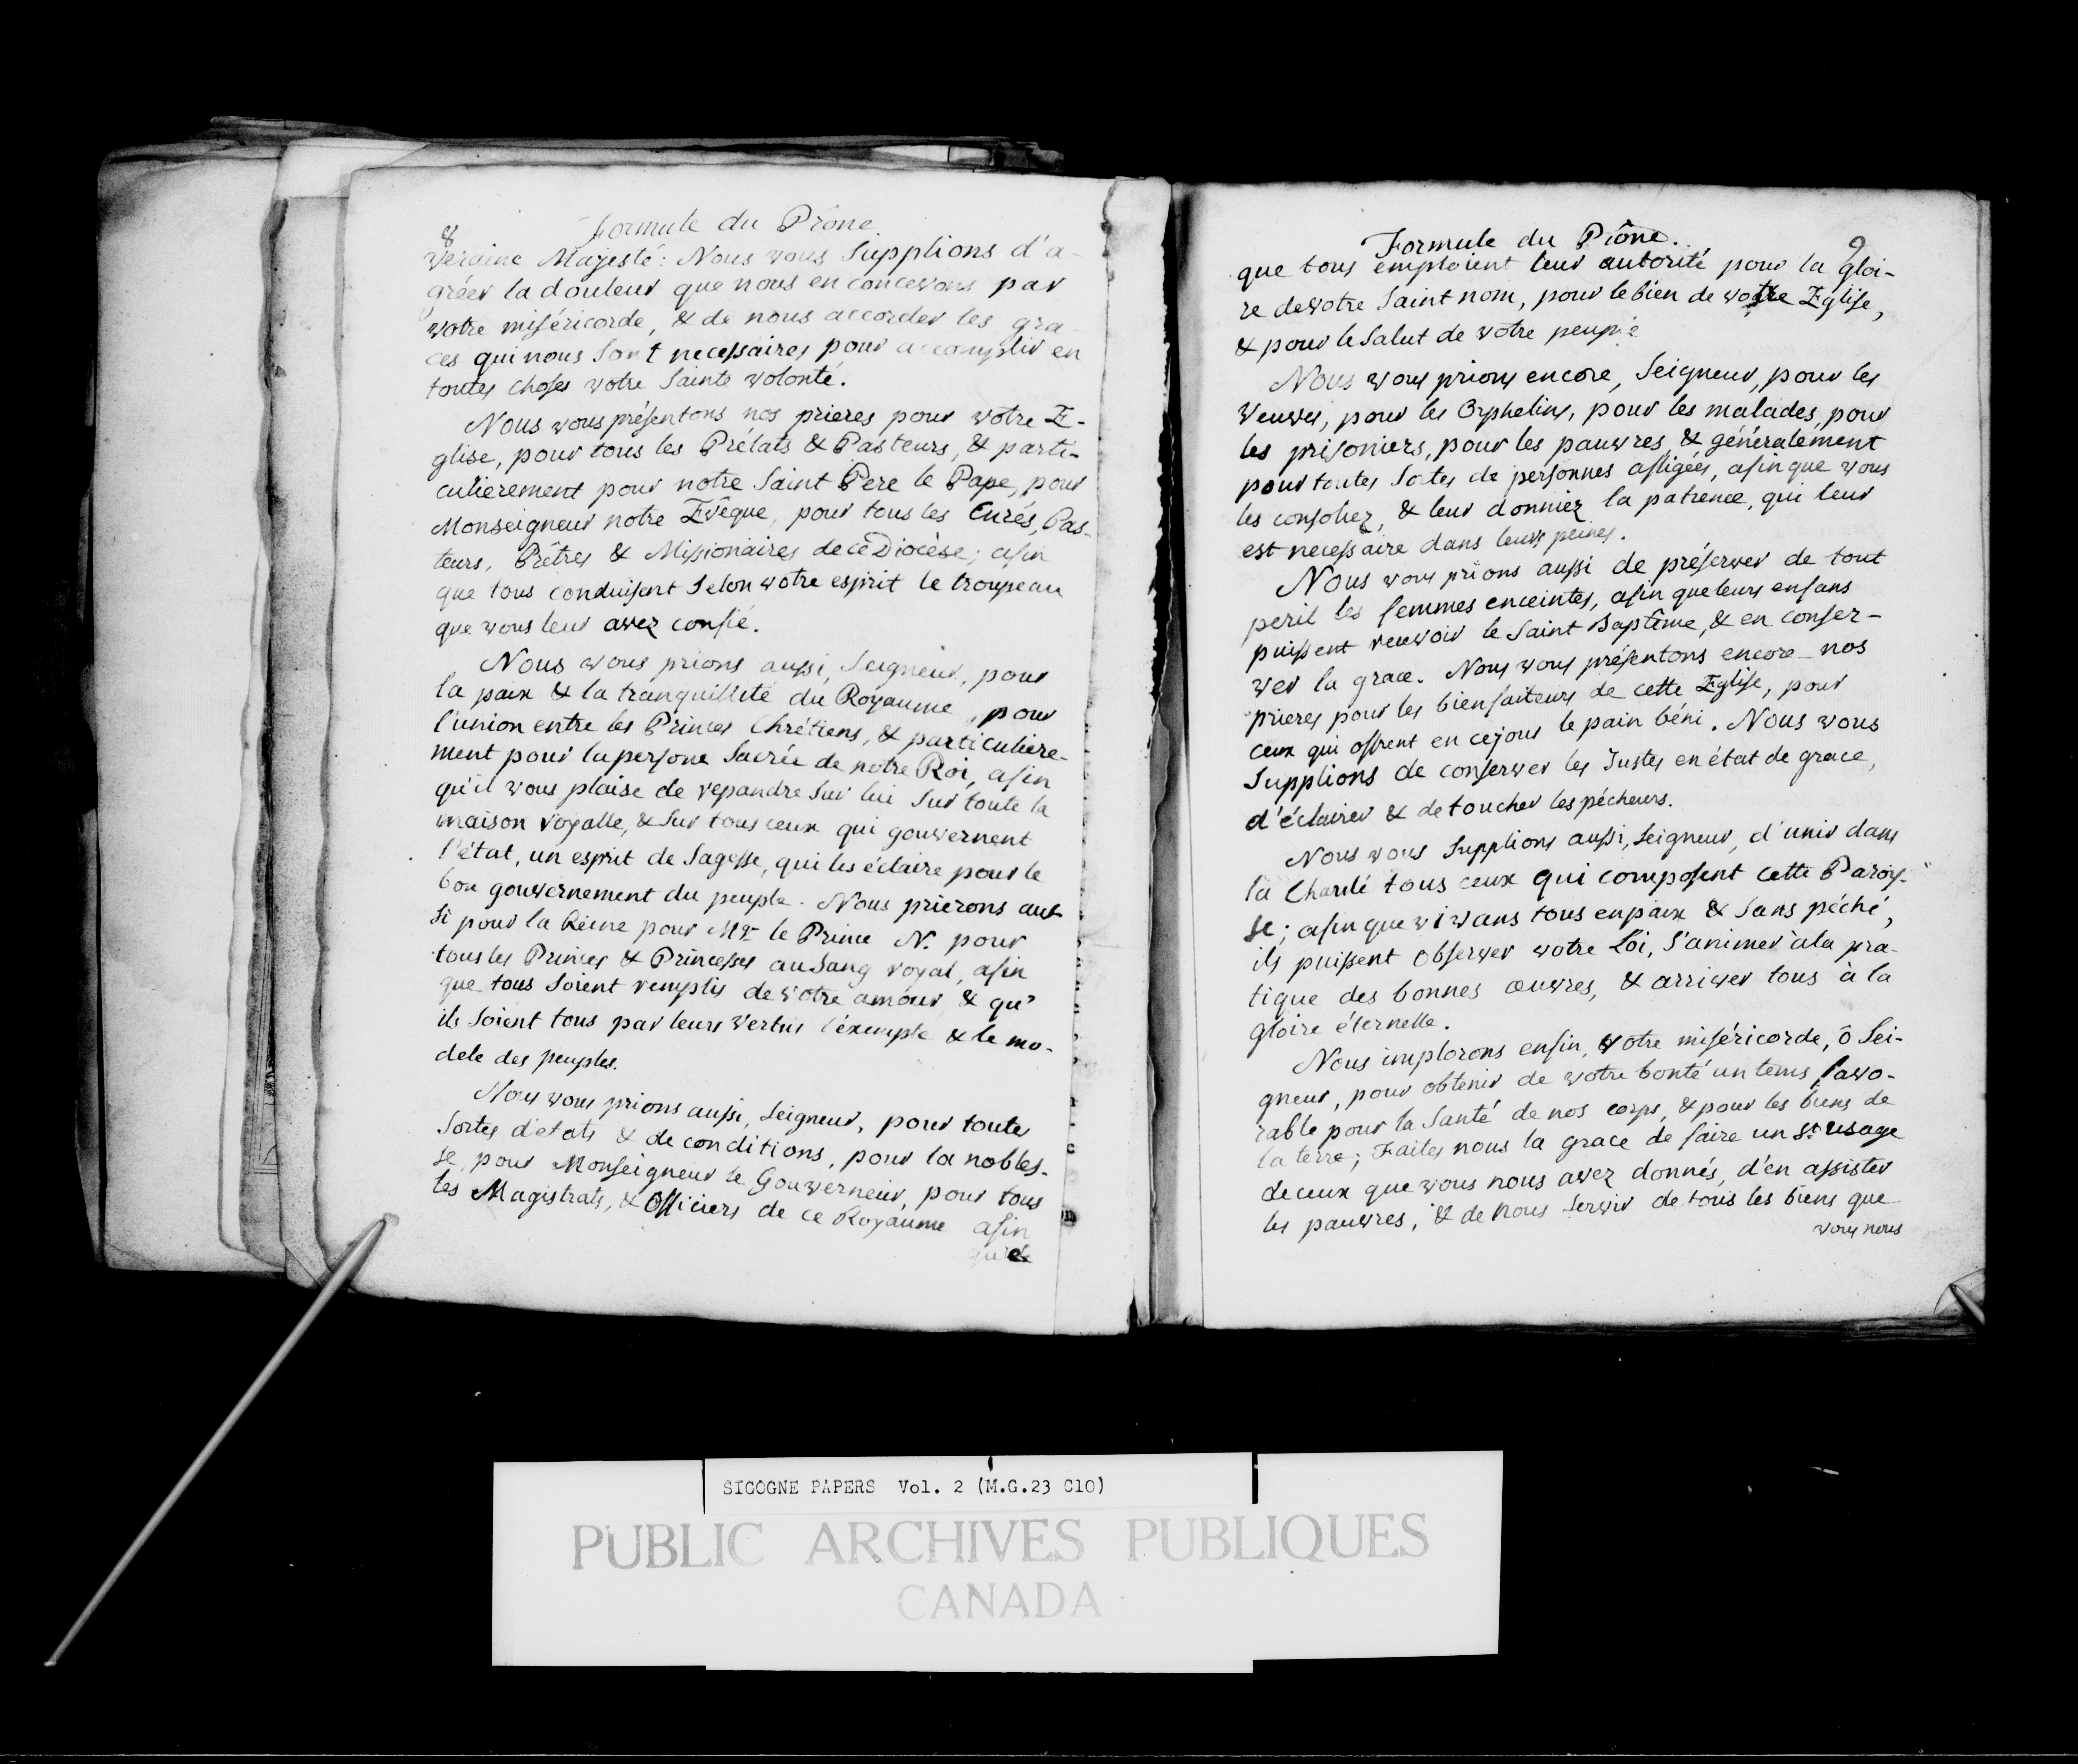 8
Formule du Prône.
veraine Majesté: Nous vous Supplions d'a-
gréer la douleur que nous en concevons par
votre miséricorde, & de nous accorder les gra-
ces qui nous Sont necessaires pour accomplir en
toutes choses votre Sainte volonté.
Nous vous présentons nos prieres pour votre E-
glise, pour tous les Prélats & Pasteurs, & parti-
culierement pour notre Saint Pere le Pape, pour
Monseigneur notre Evêque, pour tous les Curés, Pas-
teurs, Prêtres & Missionaires de ce Diocèse; afin
que tous conduisent Selon votre esprit le troupeau
que vous leur avez confié.
Nous vous prions aussi, Seigneur, pour
la paix & la tranquillité du Royaume, pour
l'union entre les Princes Chrétiens, & particuliere-
ment pour la persone Sacrée de notre Roi, afin
qu'il vous plaise de repandre Sur lui Sur toute la
maison royalle, & Sur tous ceux qui gouvernent
l'état, un esprit de Sagesse, qui les éclaire pour le
bon gouvernement du peuple. Nous prierons aus-
Si pour la Reine pour Mgr le Prince N. pour
tous les Princes & Princesses au Sang royal, afin
que tous Soient remplis de votre amour & qu'
ils Soient tous par leurs vertus l'éxemple & le mo-
dele des peuples.
Nous vous prions aussi, Seigneur, pour toute
Sortes d'etats & de conditions, pour la nobles-
se, pour Monseigneur le Gouverneur, pour tous
les Magistrats, & Officiers de ce Royaume afin
que
Formule du Prône.
9
que tous emploient leur autorité pour la gloi-
re de votre Saint nom, pour le bien de votre Eglise,
& pour le Salut de votre peuple
Nous vous prions encore, Seigneur, pour les
veuves, pour les Orphelins, pour les malades, pour
les prisoniers, pour les pauvres, & généralement
pour toutes Sortes de personnes afligées, afin que vous
les consoliez, & leur donniez la patience, qui leur
est necessaire dans leurs peines.
Nous vous prions aussi de préserver de tout
peril les femmes enceintes, afin que leurs enfans
puissent recevoir le Saint Baptême, & en conser-
ver la grace. Nous vous présentons encore nos
prieres pour les bienfaiteurs de cette Eglise, pour
ceux qui offrent en ce jour le pain béni. Nous vous
Supplions de conserver les Justes en état de grace,
d'éclairer & de toucher les pécheurs.
Nous vous Supplions aussi, Seigneur, d'unir dans
la Charité tous ceux qui composent cette Parois-
se; afin que vivans tous en paix & Sans péché,
ils puissent observer votre Loi, S'animer à la pra-
tique des bonnes œuvres, & arriver tous à la
gloire éternelle.
Nous implorons enfin, votre miséricorde, ô Sei-
gneur, pour obtenir de votre bonté un tems favo-
rable pour la Santé de nos corps, & pour les biens de
la terre; Faites nous la grace de faire un St. usage
de ceux que vous nous avez donnés, d'en assister
les pauvres, & de nous Servir de tous les biens que
vous nous
SICOGNE PAPERS Vol. 2 (M.G.23 C10)
PUBLIC ARCHIVES PUBLIQUES
CANADA